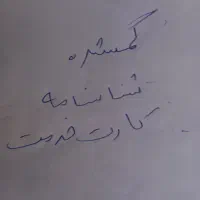 گمشده
شناسنامه
کارت خدمت